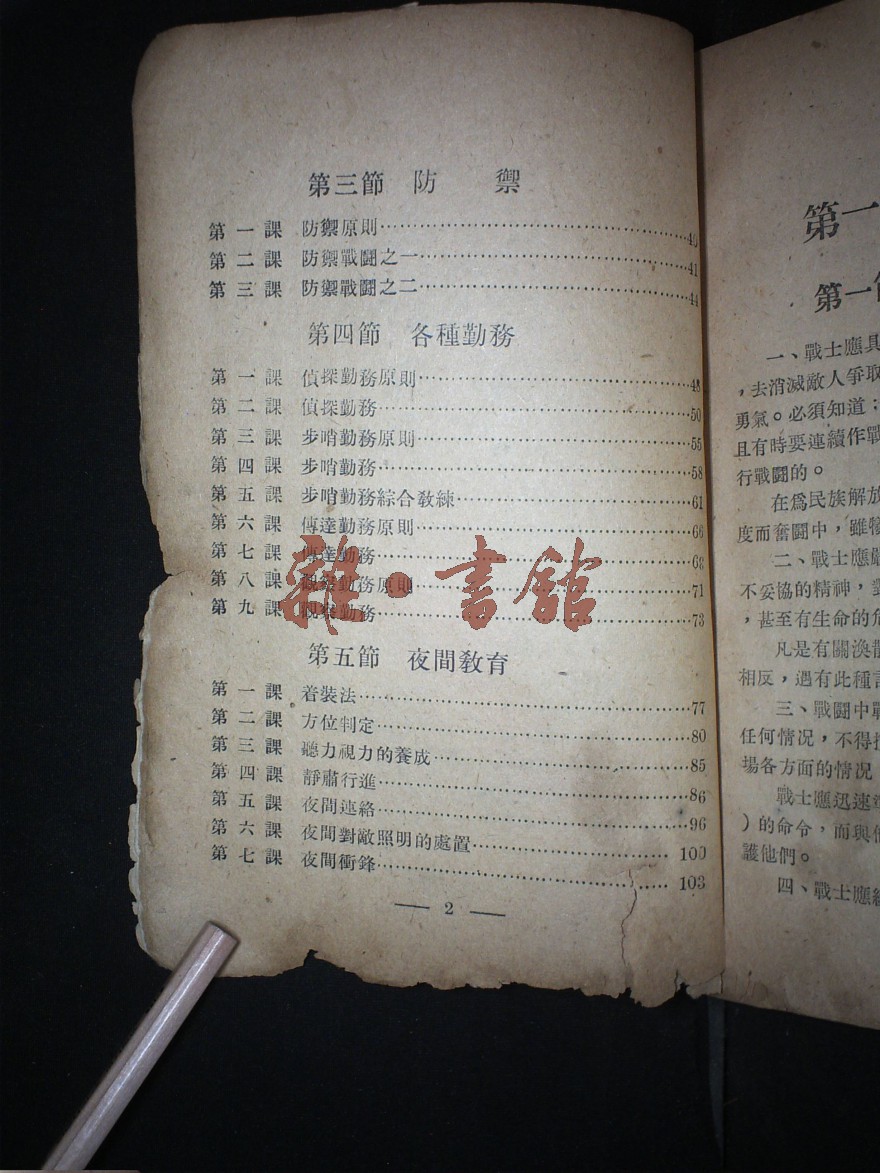 第三節 防 禦
第一課 防禦原則……40
第二課 防禦戰鬪之一……41
第三課 防禦戰鬪之二……44
第四節 各種勤務
第一課 偵探勤務原則……48
第二課 偵探勤務……50
第三課 步哨勤務原則……55
第四課 步哨勤務……58
第五課 步哨勤務綜合敎練……61
第六課 傳達勤務原則……66
第七課 傳達勤務……68
第八課 觀察勤務原則……71
第九課 觀察勤務……73
雜·書館
第五節 夜間敎育
第一課 着裝法……77
第二課 方位判定……80
第三課 聽力視力的養成……85
第四課 靜肅行進……86
第五課 夜間連絡……96
第六課 夜間對敵照明的處置……100
第七課 夜間衝鋒……103
— 2 —
第一
第一節
一、戰士應具
，去消滅敵人爭取
勇氣。必須知道；
且有時要連續作戰
行戰鬪的。
在爲民族解放
度而奮鬪中，雖犧
二、戰士應嚴
不妥協的精神，對
，甚至有生命的危
凡是有關渙散
相反，遇有此種
三、戰鬪中戰
任何情况，不得
場各方面的情况
戰士應迅速
）的命令，而與他
護他們。
四、戰士應